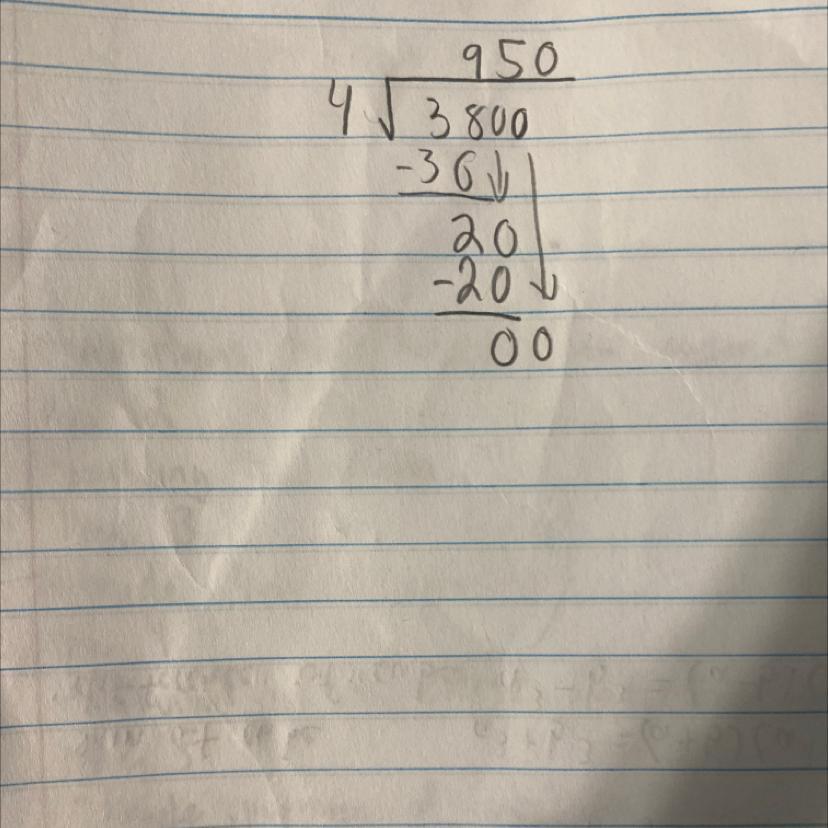 950
4 √3800
-36
20
-20
00